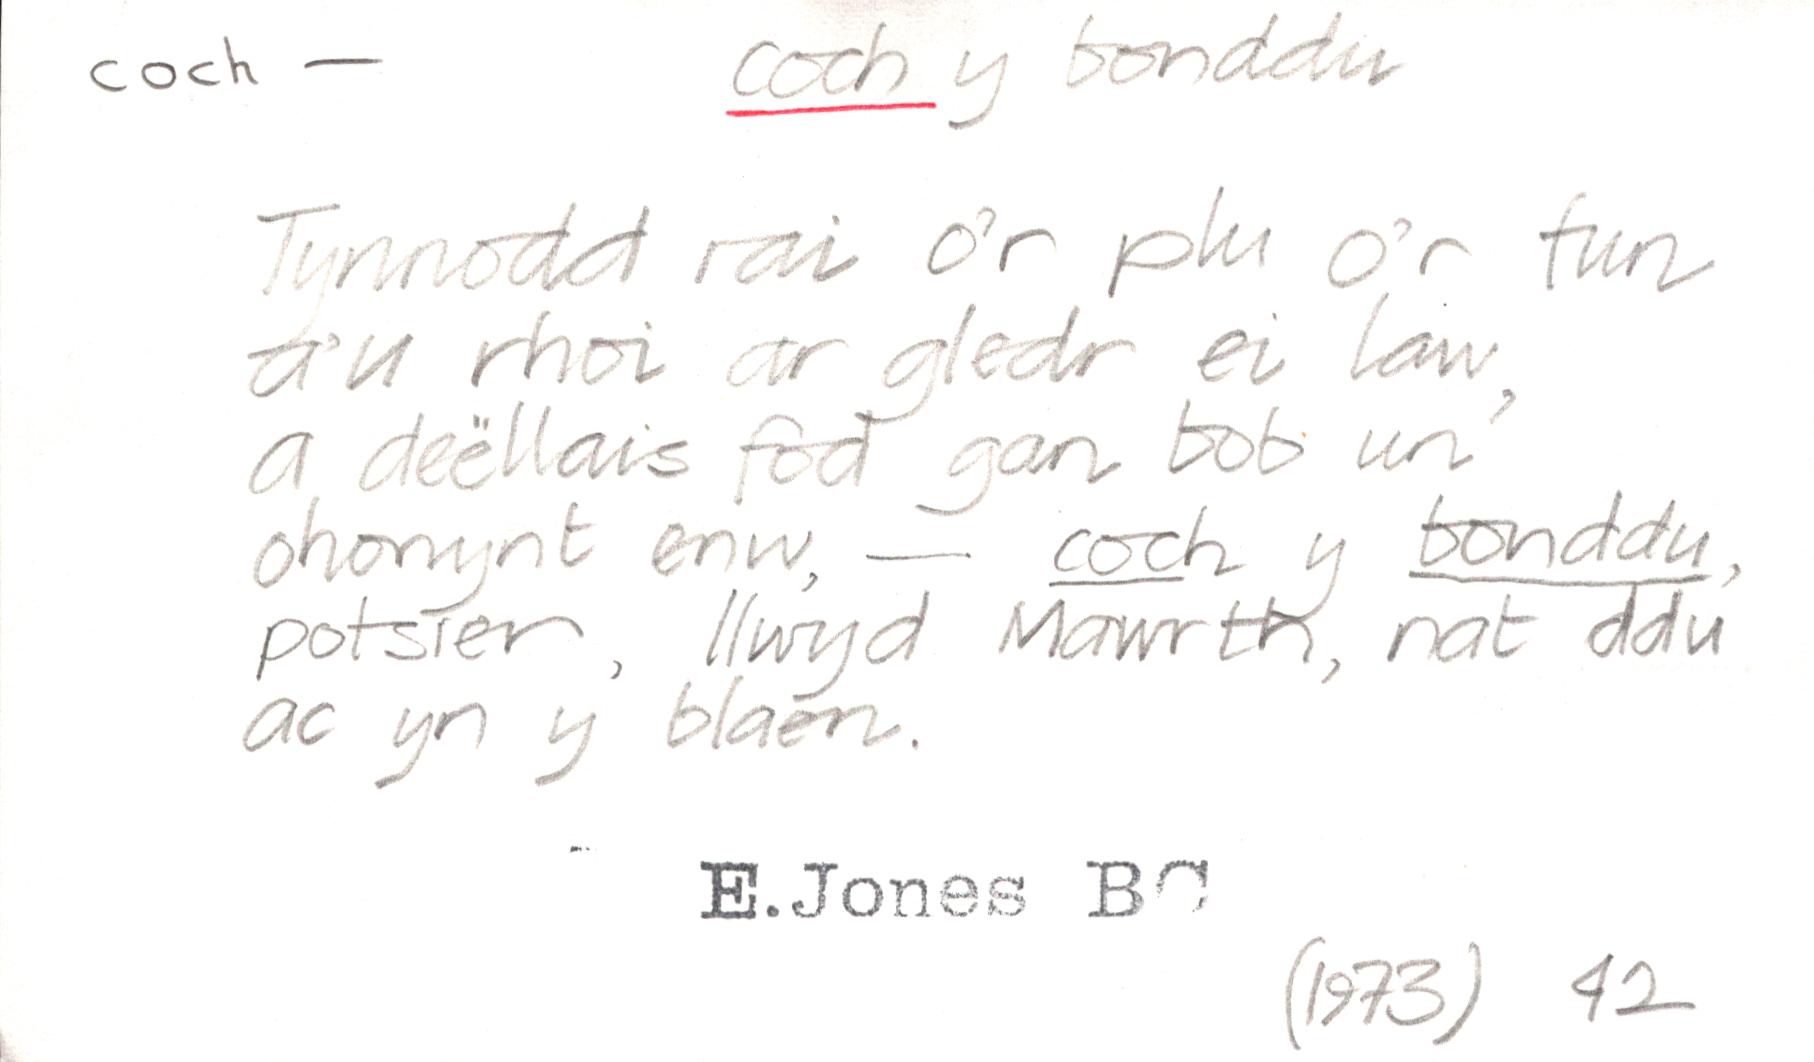 coch — coch y bonddu
Tynnodd rai o'r plu o'r tun
a'u rhoi ar gledr ei law,
a deëllais fod gan bob un
ohonynt enw, — coch y bonddu,
potsier, llwyd Mawrth, nat ddu
ac yn y blaen.
E.Jones BC
(1973) 42